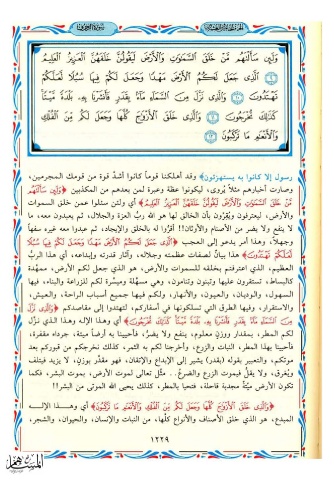 سورة الزخرف
وَلَئِن سَأَلْتَهُم مَّنْ خَلَقَ السَّمَاوَاتِ وَالْأَرْضَ لَيَقُولُنَّ خَلَقَهُنَّ الْعَزِيزُ الْعَلِيمُ
﴿٩﴾ الَّذِي جَعَلَ لَكُمُ الْأَرْضَ مَهْدًا وَجَعَلَ لَكُمْ فِيهَا سُبُلًا لَّعَلَّكُمْ
تَهْتَدُونَ ﴿١٠﴾ وَالَّذِي نَزَّلَ مِنَ السَّمَاءِ مَاءً بِقَدَرٍ فَأَنشَرْنَا بِهِ بَلْدَةً مَّيْتًا
كَذَٰلِكَ تُخْرَجُونَ ﴿١١﴾ وَالَّذِي خَلَقَ الْأَزْوَاجَ كُلَّهَا وَجَعَلَ لَكُم مِّنَ الْفُلْكِ
وَالْأَنْعَامِ مَا تَرْكَبُونَ ﴿١٢﴾
رسول إلا كانوا به يستهزئون﴾ وقد أهلكنا قوماً كانوا أشدَّ قوة من قومك المجرمين،
وصارت أخبارهم مثالاً يُروى، ليكونوا عظة وعبرة لمن بعدهم من المكذبين ﴿وَلَئِن سَأَلْتَهُم
مَّنْ خَلَقَ السَّمَاوَاتِ وَالْأَرْضَ لَيَقُولُنَّ خَلَقَهُنَّ الْعَزِيزُ الْعَلِيمُ﴾ أي ولئن سئلوا عمن خلق السموات
والأرض، ليعترفون ويُقرُّون بأن الخالق لها هو الله ربُّ العزة والجلال، ثم يعبدون معه، ما
لا ينفع ولا يضر من الأصنام والأوثان!! أقرُّوا له بالخلق والإيجاد، ثم عبدوا معه غيره سفهاً
وجهلاً، وهذا أمر يدعو إلى العجب ﴿الَّذِي جَعَلَ لَكُمُ الْأَرْضَ مَهْدًا وَجَعَلَ لَكُمْ فِيهَا سُبُلًا
لَّعَلَّكُمْ تَهْتَدُونَ﴾ هذا بيانٌ لصفات عظمته وجلاله، وآثار قدرته وإبداعه، أي هذا الربُّ
العظيم، الذي اعترفتم بخلقه للسموات والأرض، هو الذي جعل لكم الأرض، ممهّدة
كالبساط، تستقرون عليها وتبنون وتنامون، وهي مسهَّلة وميسَّرة لكم للزراعة والبناء، فيها
السهول، والوديان، والعيون، والأنهار، ولكم فيها جميع أسباب الراحة، والعيش،
والاستقرار، وفيها الطرق التي تسلكونها في أسفاركم، لتهتدوا إلى مقاصدكم ﴿وَالَّذِي نَزَّلَ
مِنَ السَّمَاءِ مَاءً بِقَدَرٍ فَأَنشَرْنَا بِهِ بَلْدَةً مَّيْتًا كَذَٰلِكَ تُخْرَجُونَ﴾ أي وهذا الإله هو الذي نزَّل
لكم المطر، بمقدار ووزنٍ معلوم، ينفع ولا يضرُّ، فأحيينا به أرضاً ميتة، جرداء مقفرة،
فأحيينا بهذا المطر، النبات والزرع، وأخرجنا لكم به الثمر، كذلك نخرجكم من قبوركم بعد
موتكم، والتعبير بقوله ﴿بقدر﴾ يشير إلى الإبداع والإتقان، فهو مقدَّر بوزنٍ، لا يزيد فيتلف
ويُغرق، ولا يقلُّ فيموت الزرع والضرع.. مثَّل تعالى لموت الأرض، بموت البشر، فكما
تكون الأرض ميّتةً مجدبة قاحلة، فتحيا بالمطر، كذلك يحيى الله الموتى من البشر!!
﴿وَالَّذِي خَلَقَ الْأَزْوَاجَ كُلَّهَا وَجَعَلَ لَكُم مِّنَ الْفُلْكِ وَالْأَنْعَامِ مَا تَرْكَبُونَ﴾ أي وهـذا الإلـه
المبدع، هو الذي خلق الأصناف والأنواع كلَّها، من النبات والإنسان، والحيوان، والشجر،
١٢٢٩